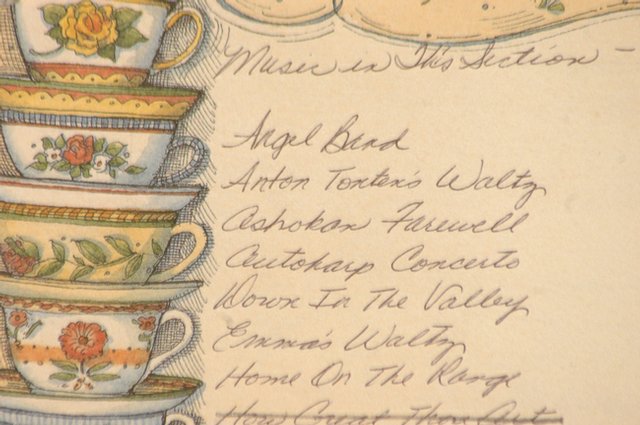 Music in This Section -
Angel Band
Anton Tonten's Waltz
Ashokan Farewell
Autoharp Concerto
Down In The Valley
Emma's Waltz
Home On The Range
How Great Thou Art